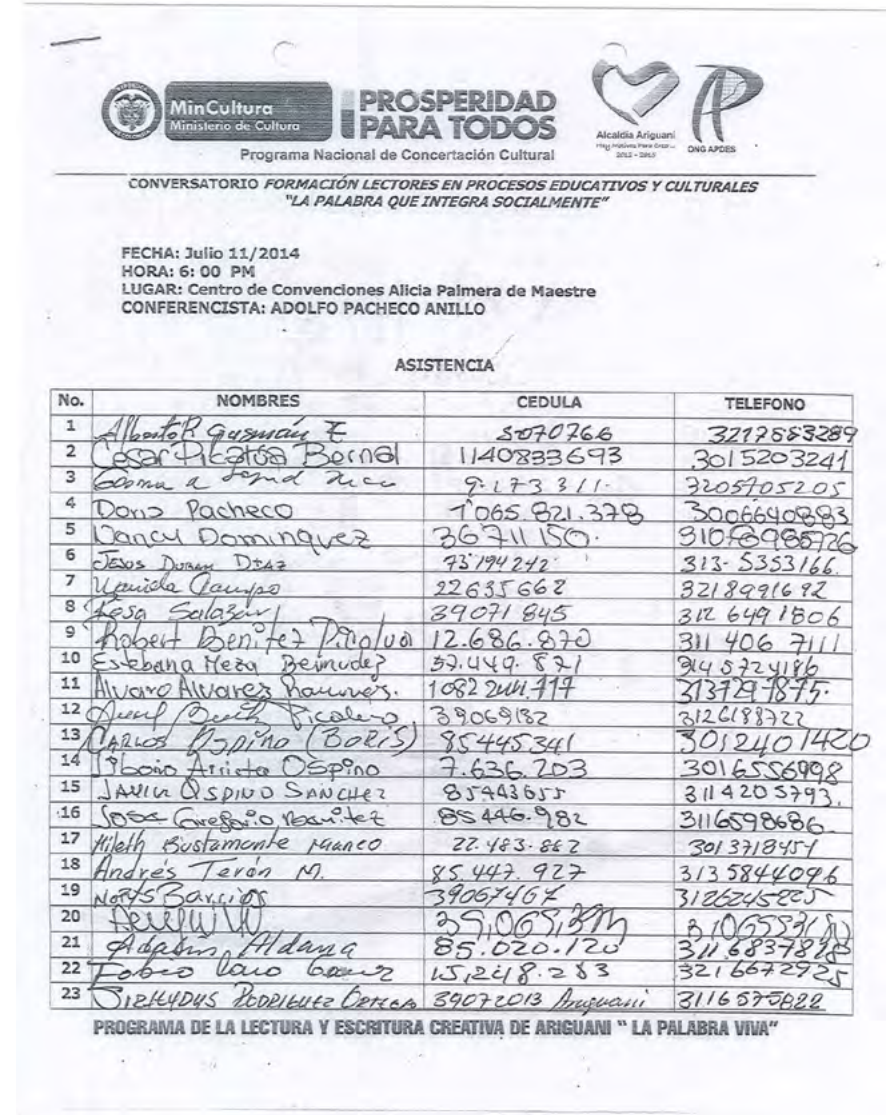 MinCultura
Ministerio de Cultura
PROSPERIDAD
PARA TODOS
Programa Nacional de Concertación Cultural
Alcaldía Ariguani
2012 - 2015
ONG APDES
CONVERSATORIO FORMACIÓN LECTORES EN PROCESOS EDUCATIVOS Y CULTURALES
"LA PALABRA QUE INTEGRA SOCIALMENTE"
FECHA: Julio 11/2014
HORA: 6: 00 PM
LUGAR: Centro de Convenciones Alicia Palmera de Maestre
CONFERENCISTA: ADOLFO PACHECO ANILLO
ASISTENCIA
No. NOMBRES CEDULA TELEFONO
1 Alberto R Guzmán 5070766 3217883289
2 Cesar Picalúa Bernal 1140833693 3015203241
3 9.173311. 3205705205
4 Doris Pacheco 1'065.821.378 3006640883
5 Nancy Dominquez 36711150.
6 JESUS DURAN DIAZ 73'194242 313-5353166.
7 Campo 22635662 3218991692
8 Rosa Salazar 39071845 312 6491806
9 Robert Benítez Picalua 12.686.870 311 406 7111
10 Estebana Meza Bermudez 57.449.871 3145724186
11 Alvaro Alvarez Ramires. 1082 313729-7875.
12 39069182 3126188722
13 CARLOS OSPINO (BORIS) 85445341 3012401420
14 Arrieta OSpino 7.636.203 3016556998
15 JAVIER OSPINO SANCHEZ 85443655 3114205793.
16 Jose Gregorio Benitez 85446.982 3116598686
17 Mileth Bustamante 22.483.862 301371845
18 Andrés Terán M. 85.447.927 3135844096
19 Norys Barrios 39067467 3126245225
20
21 Aldana 85.020.120
22 Fabio 15,248.283 3216672925
23 RODRIGUEZ ORTEGA 39072013 Ariguani 3116575822
PROGRAMA DE LA LECTURA Y ESCRITURA CREATIVA DE ARIGUANI " LA PALABRA VIVA"